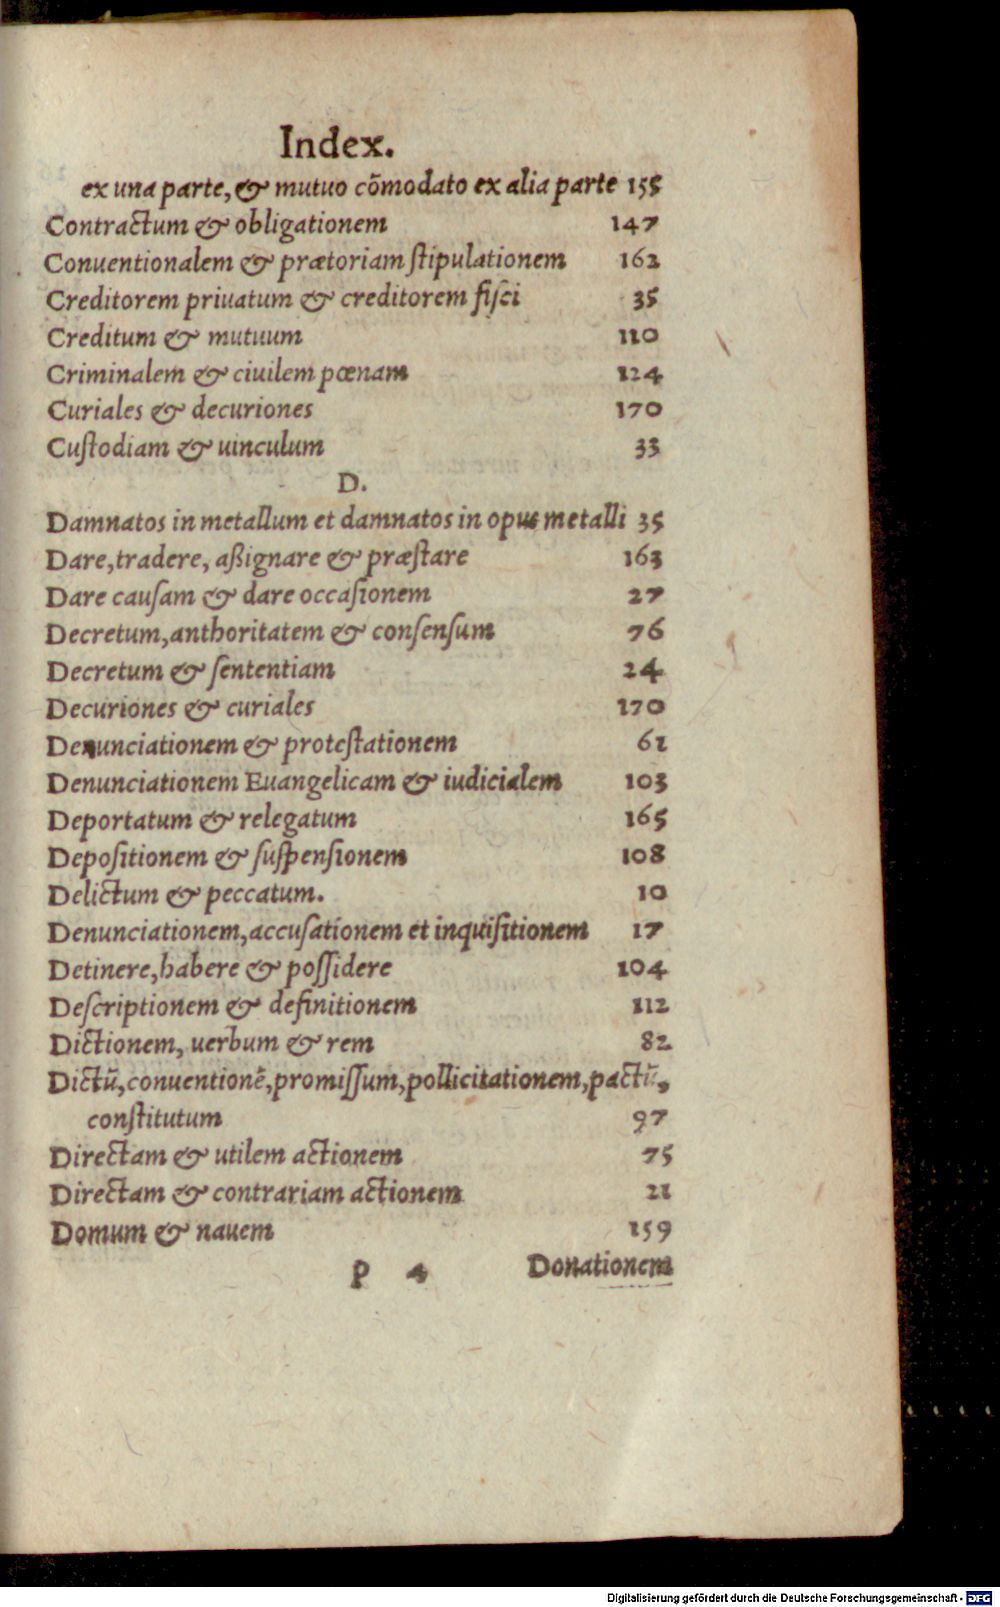 Index.
ex una parte, & mutuo cōmodato ex alia parte 155
Contractum & obligationem 147
Conuentionalem & prætoriam ſtipulationem 162
Creditorem priuatum & creditorem fiſci 35
Creditum & mutuum 110
Criminalem & ciuilem pœnam 124
Curiales & decuriones 170
Cuſtodiam & uinculum 33
D.
Damnatos in metallum et damnatos in opus metalli 35
Dare, tradere, aßignare & præſtare 163
Dare cauſam & dare occaſionem 27
Decretum, anthoritatem & conſenſum 76
Decretum & ſententiam 24
Decuriones & curiales 170
Denunciationem & proteſtationem 61
Denunciationem Euangelicam & iudicialem 103
Deportatum & relegatum 165
Depoſitionem & ſuſpenſionem 108
Delictum & peccatum. 10
Denunciationem, accuſationem et inquiſitionem 17
Detinere, habere & poſſidere 104
Deſcriptionem & definitionem 112
Dictionem, uerbum & rem 82
Dictū, conuentionē, promiſſum, pollicitationem, pactū,
conſtitutum 97
Directam & utilem actionem 75
Directam & contrariam actionem 21
Domum & nauem 159
P 4 Donationem
Digitalisierung gefördert durch die Deutsche Forschungsgemeinschaft - DFG